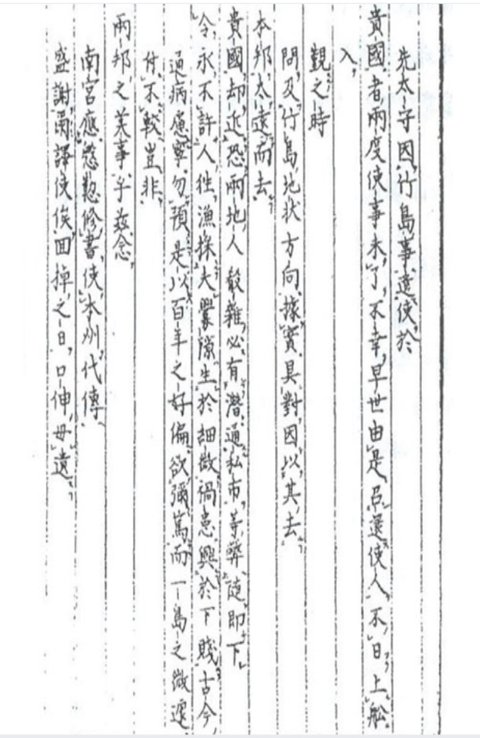 先太守因竹島事遣使於
貴國者兩度使事未了不幸早世由是召還使人不日上船
入
觀之時
問及竹島地状方向據實具對因以其去
本邦太遠而去
貴國却近恐兩地人殽雜必有潜通私市等弊随即下
令永不許人往漁採夫釁隙生於細微禍患興於下賤古今
通病慮寧勿預是以百年之好偏欲彌篤而一島之微遽
付不較豈非
兩邦之美事乎玆念
南宮應慇懃修書使本州代傳
盛謝爾譯使俟回掉之日口伸毋遺